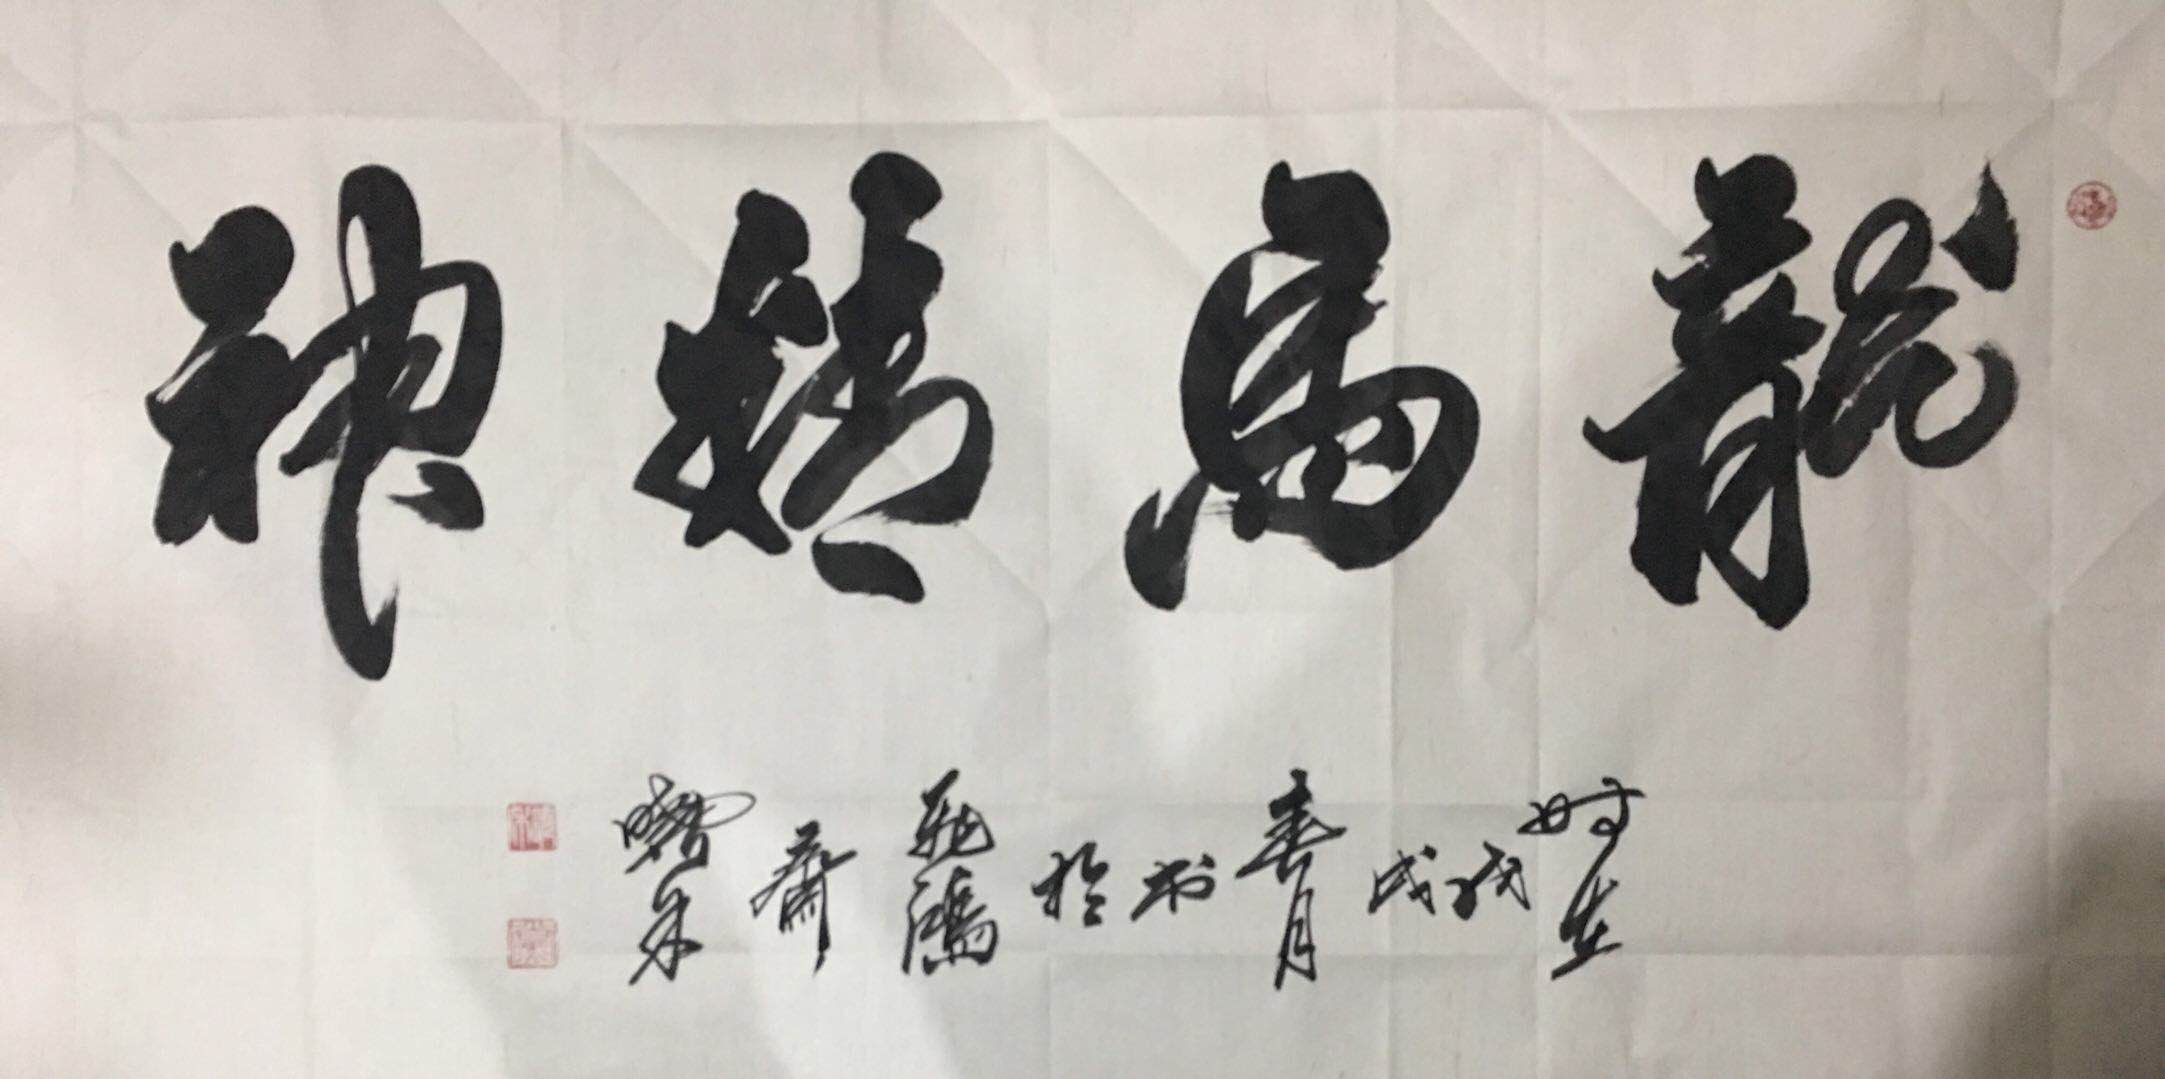 龍馬精神
時在戊戌春月書於飛鴻齋